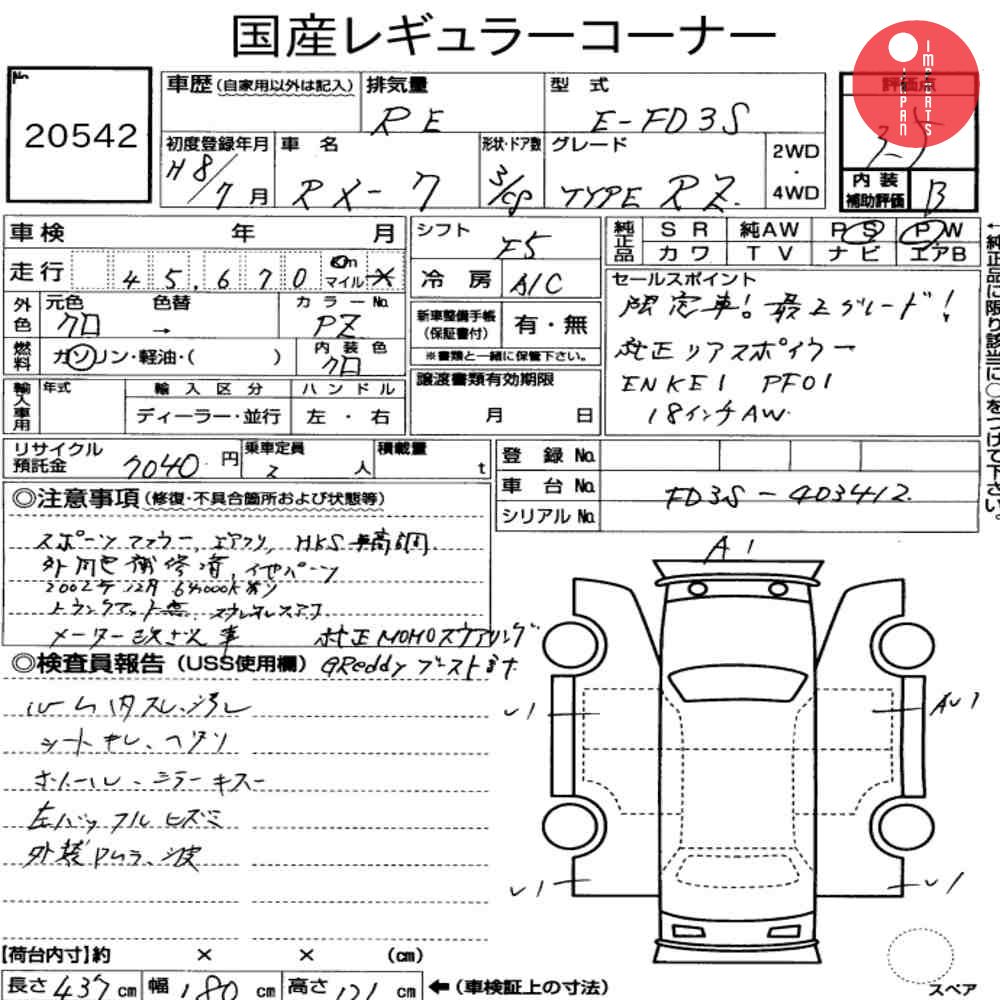 国産レギュラーコーナー
JAPAN IMPORTS
No. 20542
車歴(自家用以外は記入) 排気量 RE 型式 E-FD3S 評価点 3.5
初度登録年月 H8/7月 車名 RX-7 形状・ドア数 3/cp グレード TYPE RZ. 2WD・4WD 内装補助評価 B
車検 年 月 シフト F5 純正品 SR 純AW PS PW
カワ TV ナビ エアB
走行 45,670 km マイル 冷房 A/C
セールスポイント
限定車!最上グレード!
純正リアスポイラー
ENKEI PF01
18インチAW
←純正品に限り該当に○をつけて下さい。
外色 元色 クロ 色替 → カラーNo. PZ
燃料 ガソリン・軽油・( ) 内装色 クロ
新車整備手帳(保証書付) 有・無
※書類と一緒に保管下さい。
輸入車用 年式 輸入区分 ハンドル
ディーラー・並行 左・右
譲渡書類有効期限
月 日
リサイクル預託金 7040円 乗車定員 2人 積載量 t
登録No.
車台No. FD3S-403412
シリアルNo.
◎注意事項(修復・不具合箇所および状態等)
スポーツマフラー、エアクリ、HKS車高調
外 補修済、他パーツ
2002年12月 64000k
トランクマット無
メーター改ざん車 純正MOMOステアリング
GReddyブースト計
◎検査員報告(USS使用欄)
ルーム内スレ、汚レ
シートキレ、ヘタリ
ホイール、ミラーキズ
左バックフルヒズミ
外装Pムラ、波
A1
U1
AU1
U1
U1
【荷台内寸】約 × × (cm)
長さ 437cm 幅 180cm 高さ 121cm ←(車検証上の寸法)
スペア